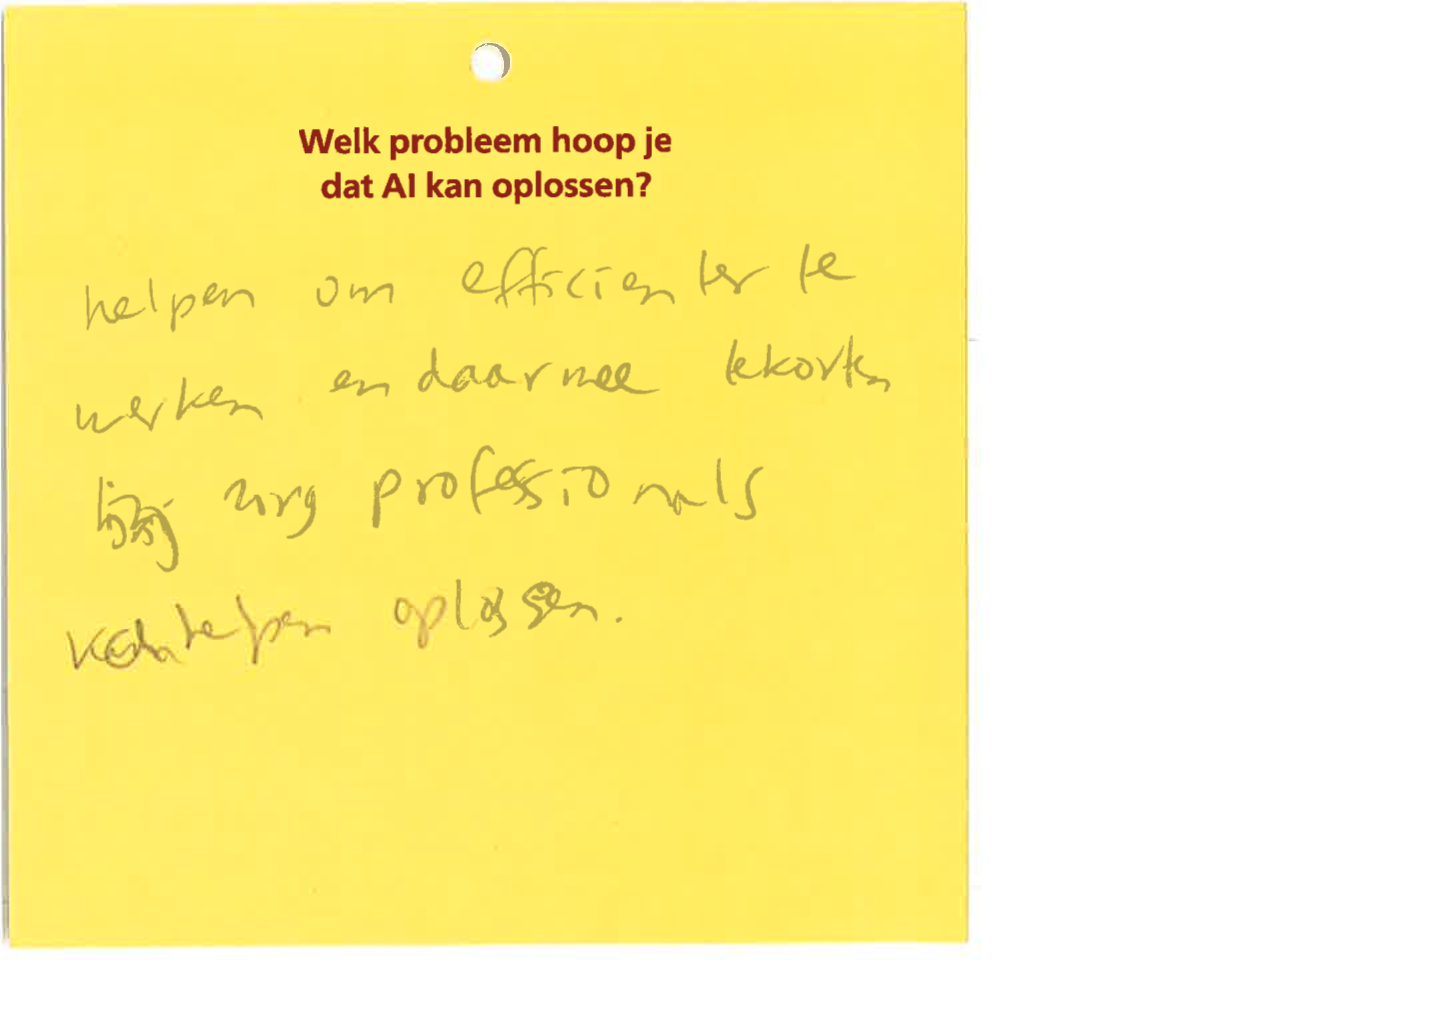 Welk probleem hoop je
dat AI kan oplossen?
helpen om efficienter te
werken en daarmee tekorten
bij zorg professionals
kan helpen oplossen.